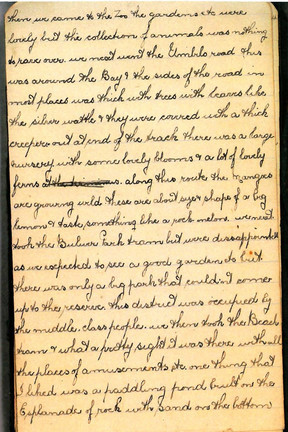 then we came to the Zoo the gardens etc were
lovely but the collection of animals was nothing
to rave over. we next went the Umbilo road this
was around the Bay & the sides of the road in
most places was thick with trees with leaves like
the silver wattle & they were covered with a thick
creeper out at end of the track there was a large
nursery with some lovely blooms & a lot of lovely
ferms along this route the Mangoes
are growing wild these are about your shape of a big
lemon & taste something like a rock melon. we next
took the Bulwer Park tram but were dissapointed
as we expected to see a good gardens etc but
there was only a big park that could'nt comer
up to the reserve. this district was occupied by
the middle. class peoples. we then took the Beach
tram & what a pretty sight it was there with all
the places of amusements etc one thing that
I liked was a paddling pond built on the
Esplanade of rock with sand on the bottom